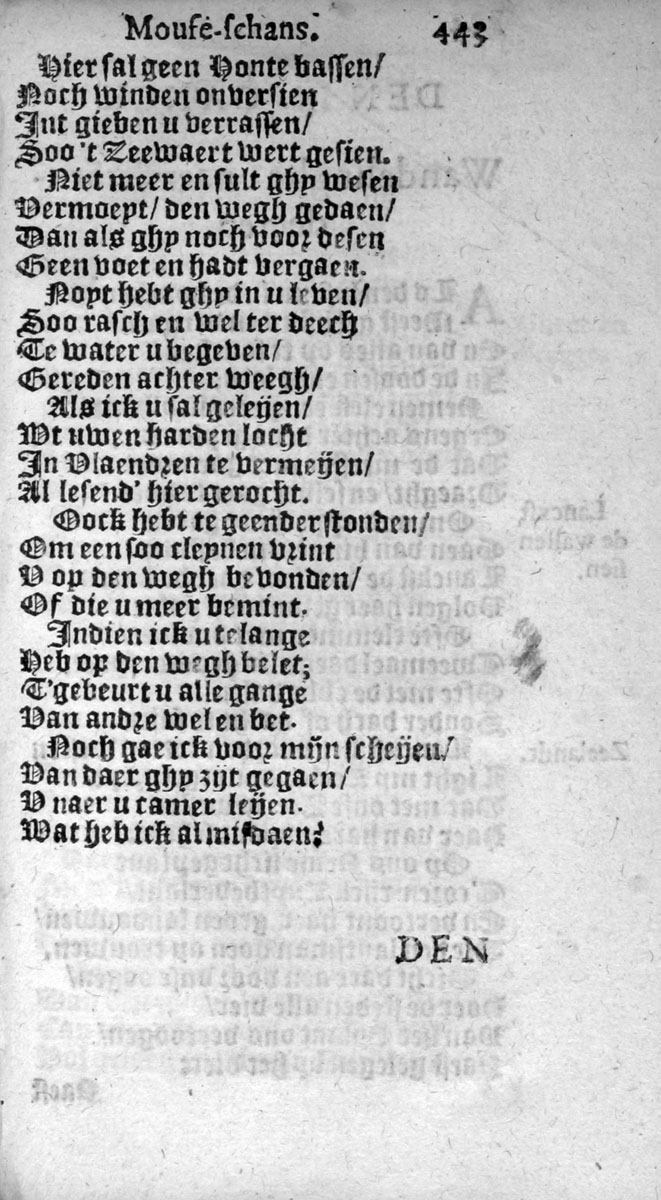 Mouse-schans. 443
Hier sal geen Honte bassen/
Noch winden onversien
Int gieben u verrassen/
Soo 't Zeewaert wert gesien.
Niet meer en sult ghy wesen
Vermoeyt/ den wegh gedaen/
Dan als ghy noch voor desen
Geen voet en hadt vergaen.
Noyt hebt ghy in u leven/
Soo rasch en wel ter deech
Te water u begeven/
Gereden achter weegh/
Als ick u sal geleyen/
Wt uwen harden locht
In Vlaendren te vermeyen/
Al lesend' hier gerocht.
Oock hebt te geender stonden/
Om een soo cleynen vrint
V op den wegh bevonden/
Of die u meer bemint.
Indien ick u te lange
Heb op den wegh belet;
T'gebeurt u alle gange
Van andre wel en bet.
Noch gae ick voor mijn scheyen/
Van daer ghy zijt gegaen/
V naer u camer leyen.
Wat heb ick al misdaen?
DEN